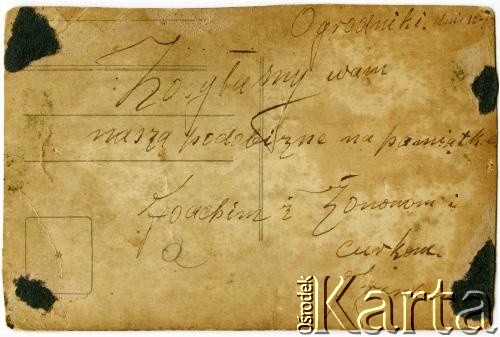 Ogrodniki. dnia 10
Zosyłamy wam
naszą podobizne na pamiątke
Joachim i Zonom i
curkom
a
Ośrodek
Karta